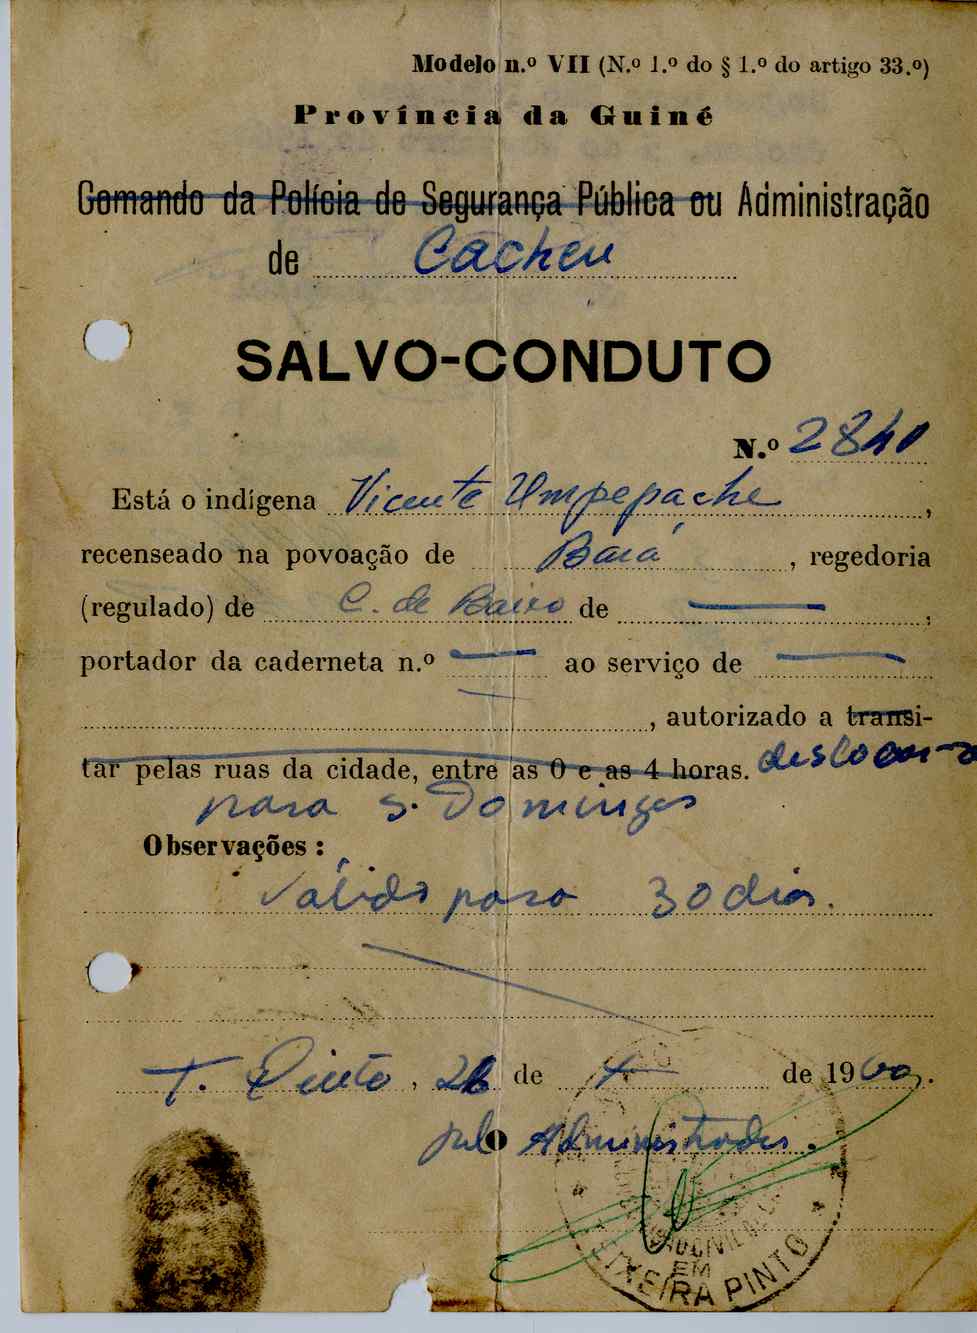 Modelo n.º VII (N.º 1.º do § 1.º do artigo 33.º)
Província da Guiné
Comando da Polícia de Segurança Pública ou Administração
de Cacheu
SALVO-CONDUTO
N.º 2840
Está o indígena Vicente Umpepache,
recenseado na povoação de Bará, regedoria
(regulado) de C. de Baixo de
portador da caderneta n.º ao serviço de
, autorizado a transi-
tar pelas ruas da cidade, entre as 0 e as 4 horas. deslocar-se
para S. Domingos
Observações:
Válido para 30 dias.
T. Pinto, 26 de 4 de 1960.
pelo Administrador.
EM
TEIXEIRA PINTO